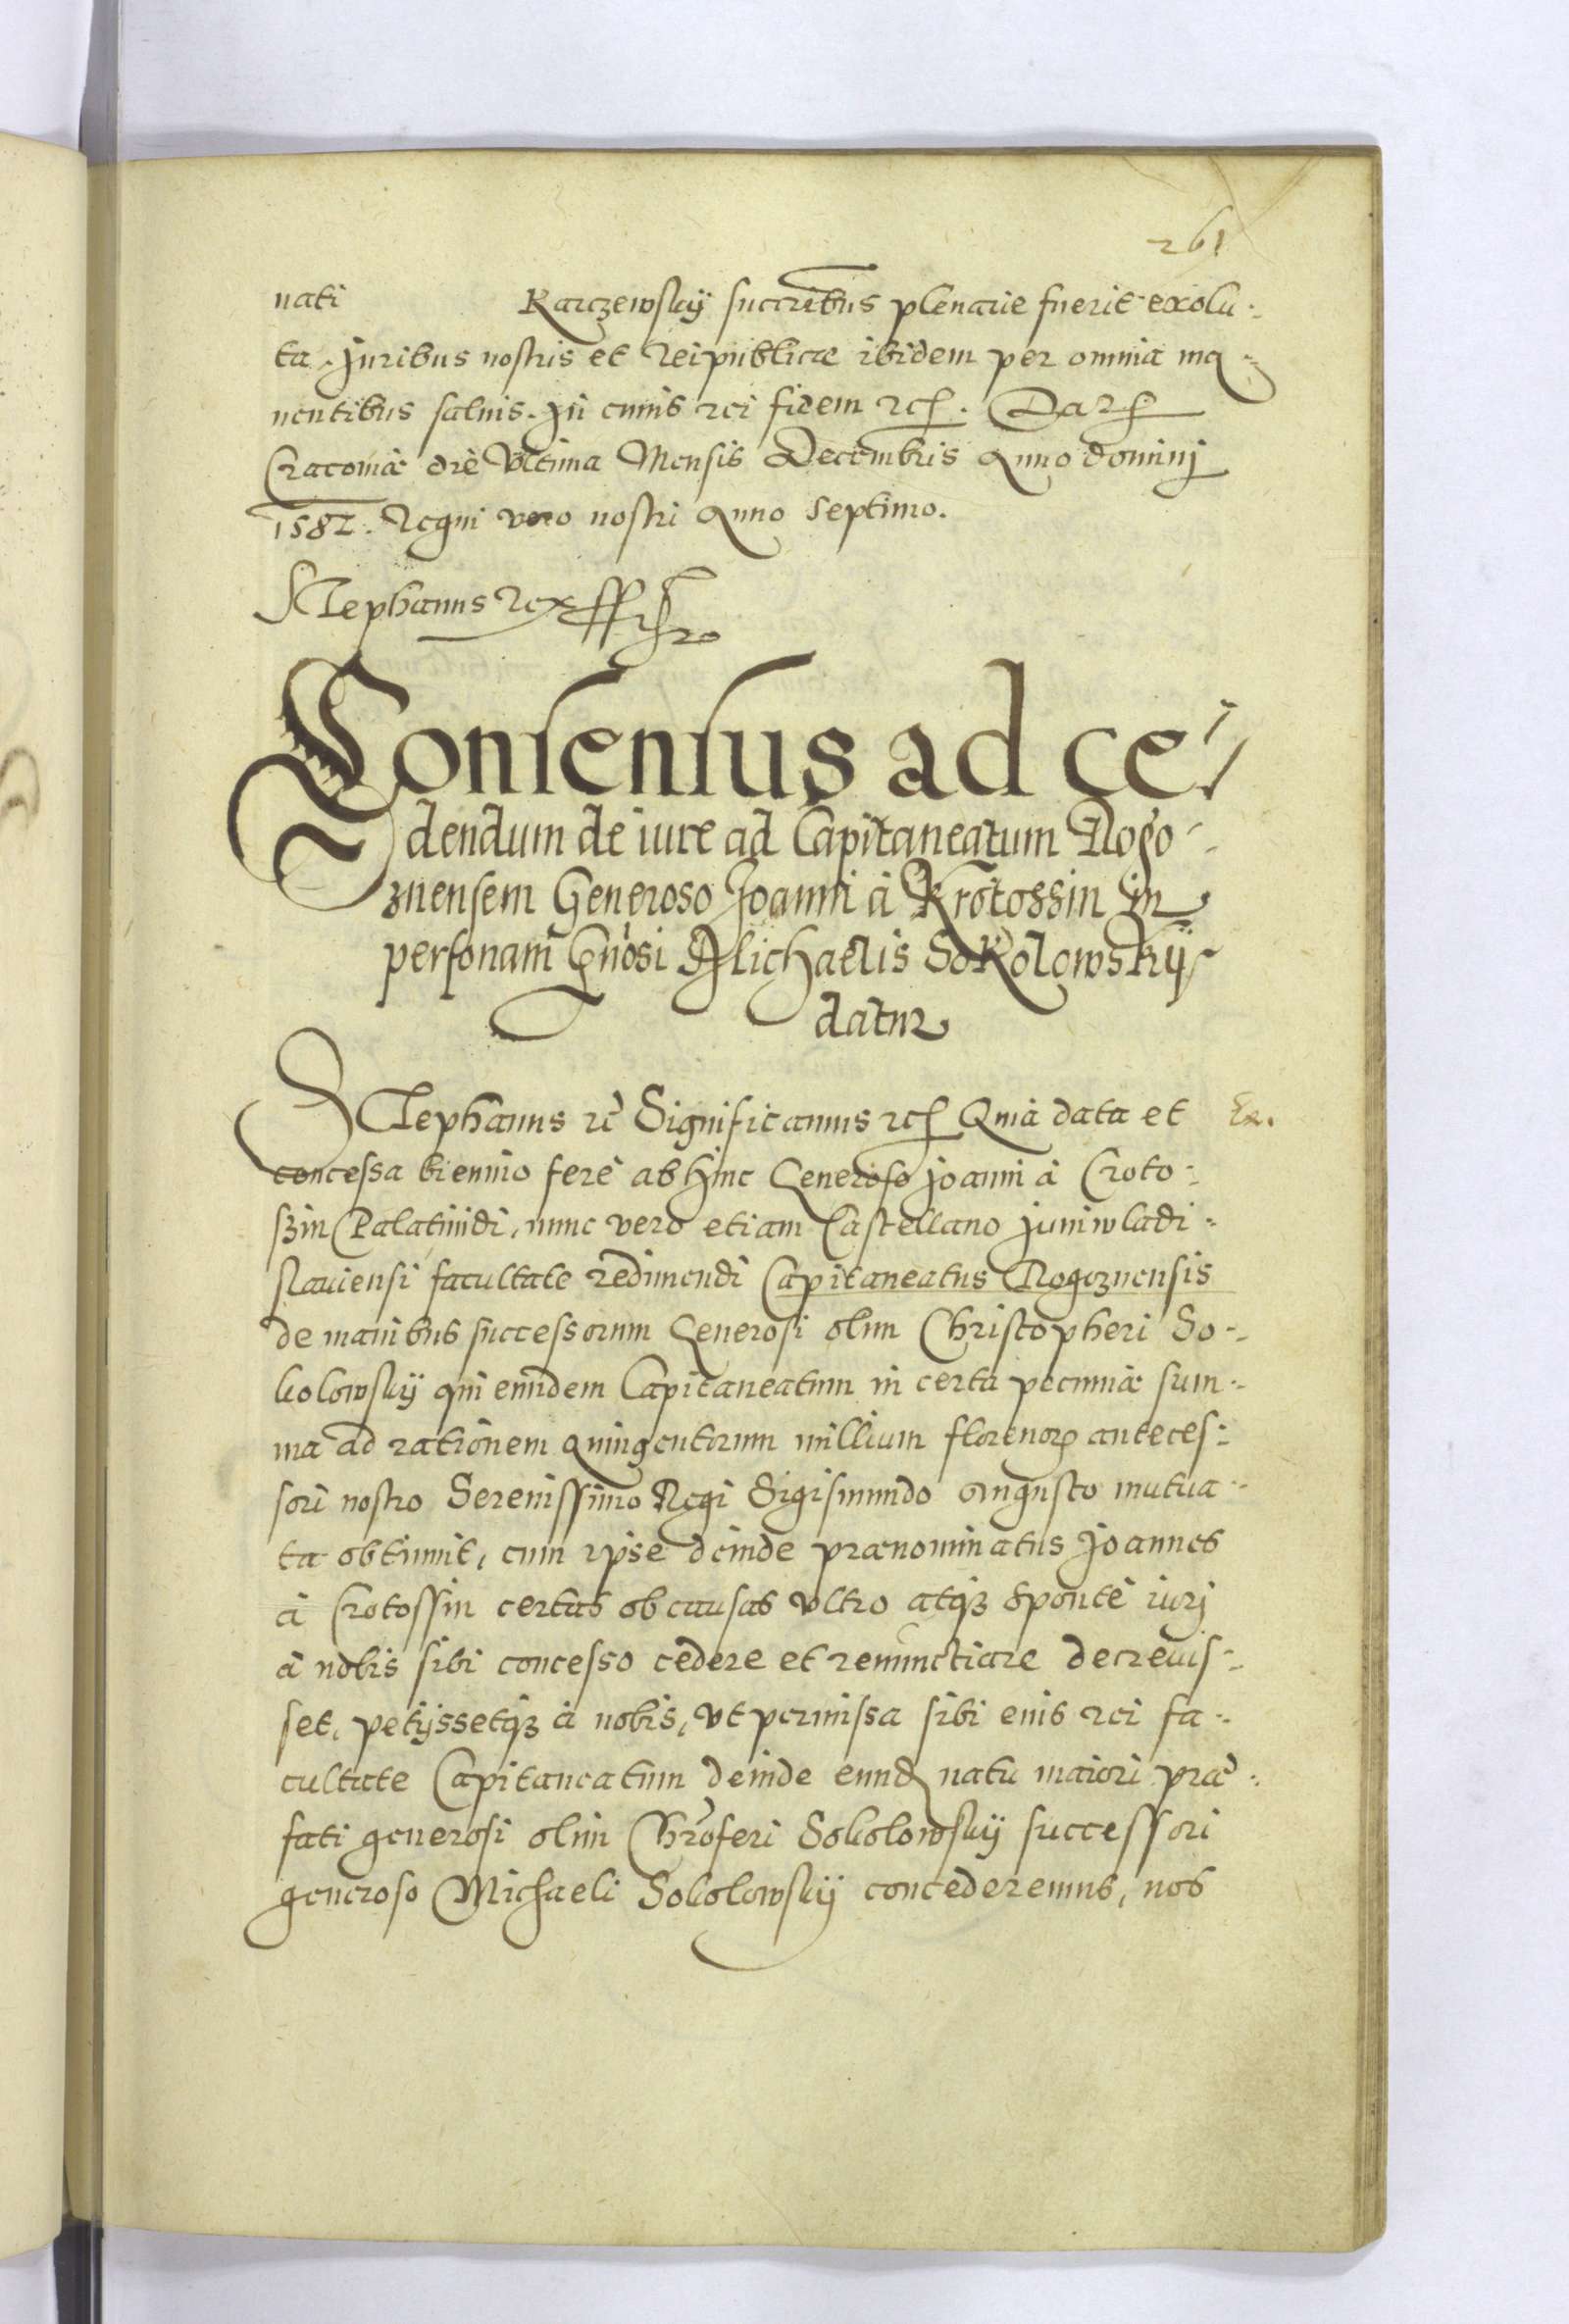 261
nati Karczewskÿ succribus plenarie fuerit exolu-
ta. Juribus nostris et Reipublicæ ibidem per omnia ma-
nentibus saluis. In cuius rei fidem etc. Dat
Cracouiæ die Vltima Mensis Decembris Anno Dominj
1582. Regni vero nostri Anno Septimo.
Stephanus Rex
Consensus ad ce-
dendum de iure ad Capitaneatum Rogo-
znensem Generoso Joanni à Krotossin in
personam Gnosi Michaelis Sokolowskÿ
datur
Stephanus etc Significamus etc Quia data et Ex.
concessa biennio ferè abhinc Generoso Joanni à Croto-
szin Palatinidi, nunc vero etiam Castellano Juniwladi-
slauiensi facultate redimendi Capitaneatus Rogoznensis
de manibus successorum Generosi olim Christopheri So-
kolowskÿ qui eundem Capitaneatum in certa pecuniæ sum-
ma ad rationem quingentorum millium florenorum anteces-
sori nostro Serenissimo Regi Sigismundo Augusto mutua-
ta obtinuit, cum ipse deinde prænominatus Joannes
à Crotossin certas ob causas vltro atqz sponte iurj
à nobis sibi concesso cedere et renunctiare decreuis-
set, petÿssetqz à nobis, vt permissa sibi eius rei fa-
cultate Capitaneatum deinde eund natu maiori præ-
fati generosi olim Chroferi Sokolowskÿ successori
generoso Michaeli Sokolowskÿ concederemus, nos